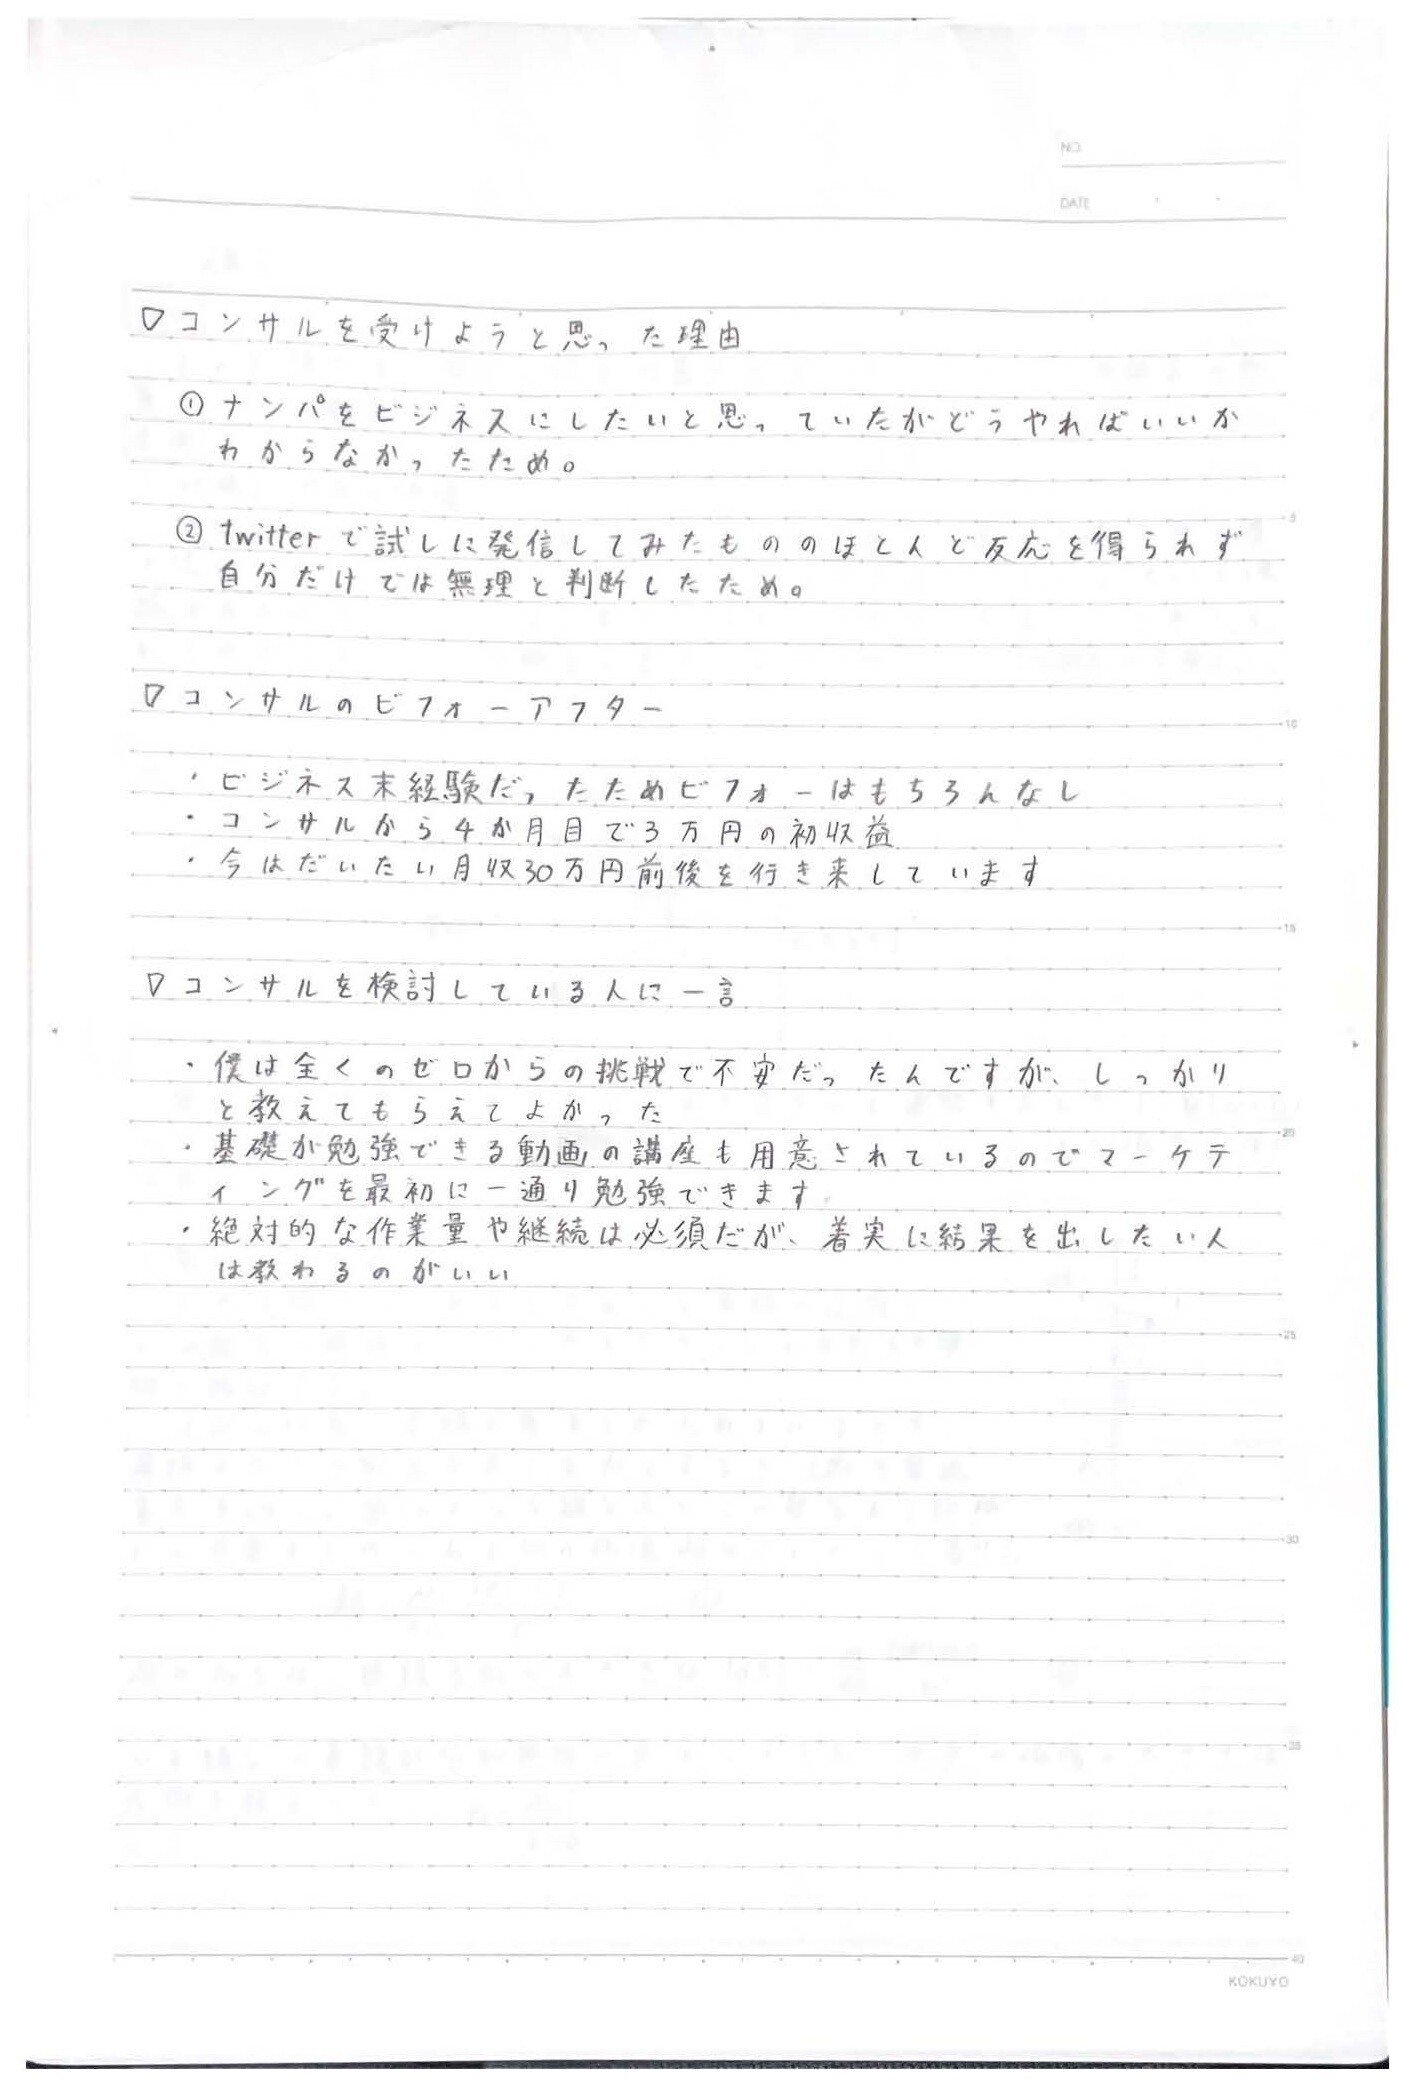 NO.
DATE
▽コンサルを受けようと思った理由
①ナンパをビジネスにしたいと思っていたがどうやればいいか
わからなかったため。
②twitterで試しに発信してみたもののほとんど反応を得られず
自分だけでは無理と判断したため。
5
▽コンサルのビフォーアフター
10
・ビジネス未経験だったためビフォーはもちろんなし
・コンサルから4か月目で3万円の初収益
・今はだいたい月収30万円前後を行き来しています
15
▽コンサルを検討している人に一言
・僕は全くのゼロからの挑戦で不安だったんですが、しっかり
と教えてもらえてよかった
20
・基礎が勉強できる動画の講座も用意されているのでマーケテ
ィングを最初に一通り勉強できます
・絶対的な作業量や継続は必須だが、着実に結果を出したい人
は教わるのがいい
25
30
35
40
KOKUYO